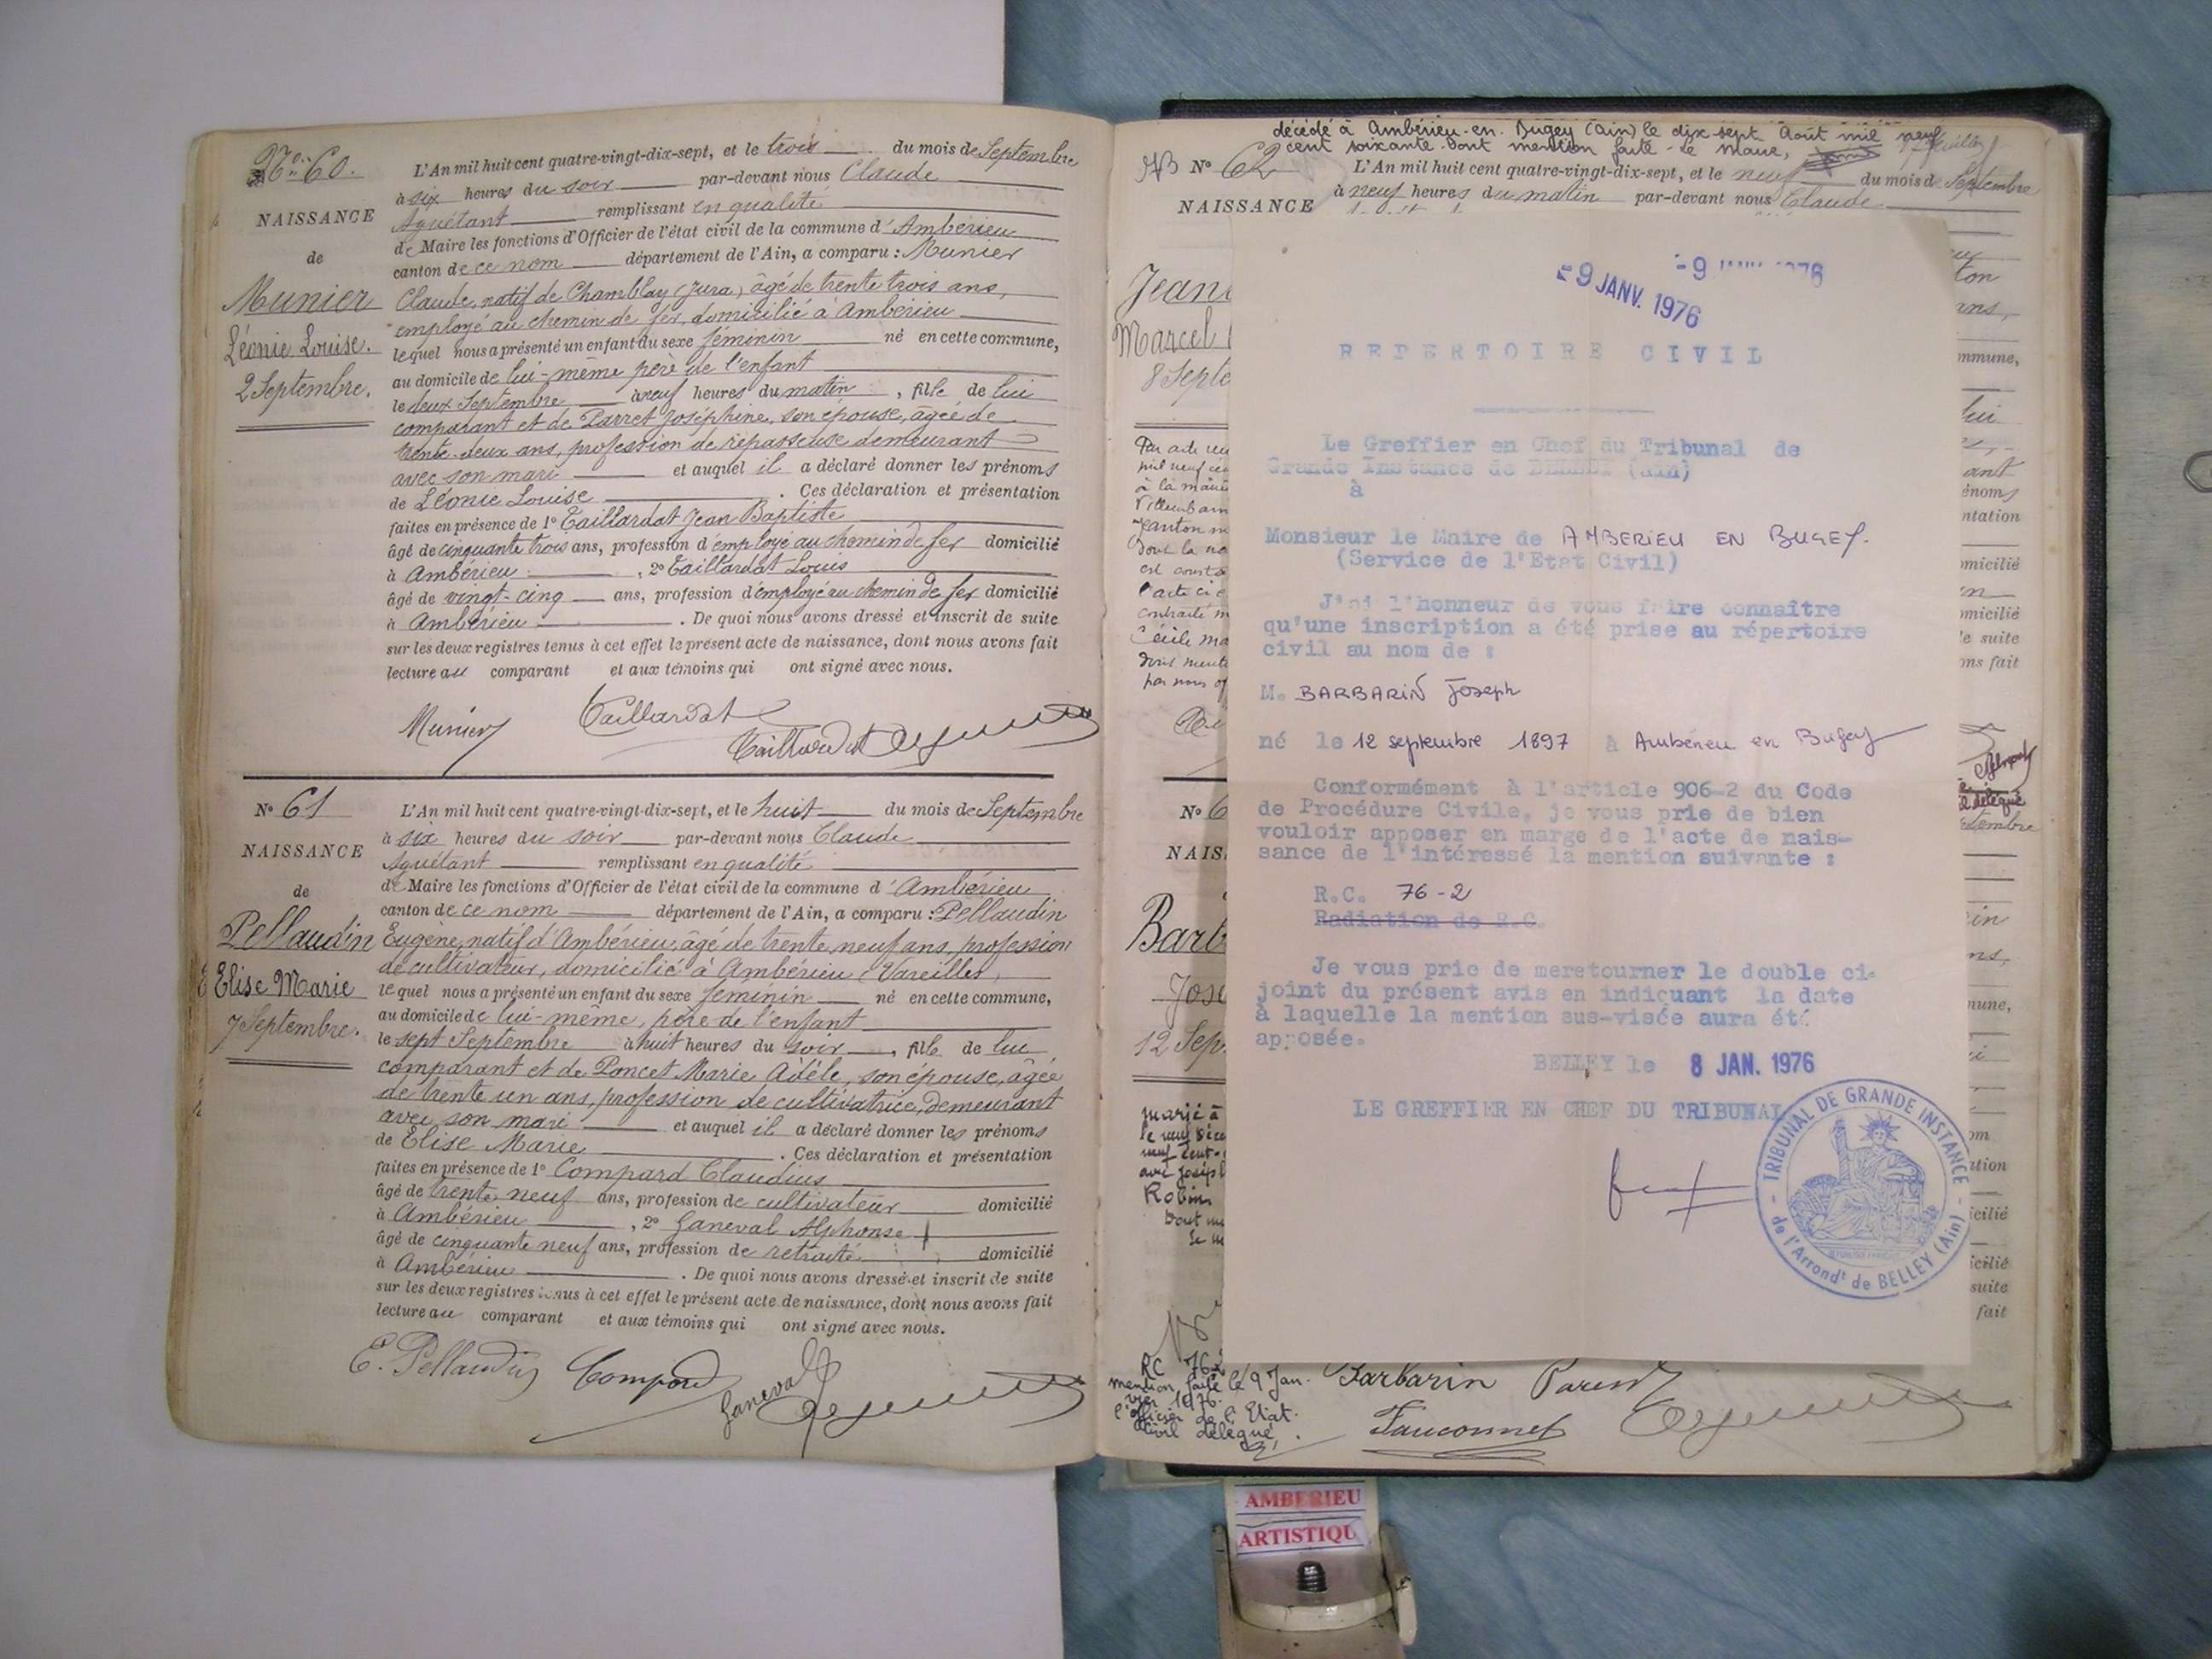 N° 60.
NAISSANCE
de
Munier
Léonie Louise.
2 Septembre.
L'An mil huit cent quatre-vingt-dix-sept, et le trois du mois de Septembre
à six heures du soir par-devant nous Claude
Aguétant remplissant en qualité
de Maire les fonctions d'Officier de l'état civil de la commune d'Ambérieu
canton de ce nom département de l'Ain, a comparu : Munier
Claude, natif de Chamblay (Jura), âgé de trente trois ans,
employé au chemin de fer, domicilié à Ambérieu
lequel nous a présenté un enfant du sexe féminin né en cette commune,
au domicile de lui-même père de l'enfant
le deux Septembre à neuf heures du matin, fille de lui
comparant et de Parret Joséphine, son épouse, âgée de
trente-deux ans, profession de repasseuse demeurant
avec son mari et auquel il a déclaré donner les prénoms
de Léonie Louise. Ces déclaration et présentation
faites en présence de 1° Taillardat Jean Baptiste
âgé de cinquante trois ans, profession d'employé au chemin de fer domicilié
à Ambérieu, 2° Taillardat Louis
âgé de vingt-cinq ans, profession d'employé au chemin de fer domicilié
à Ambérieu. De quoi nous avons dressé et inscrit de suite
sur les deux registres tenus à cet effet le présent acte de naissance, dont nous avons fait
lecture au comparant et aux témoins qui ont signé avec nous.
Munier Taillardat
Taillardat
N° 61
NAISSANCE
de
Pellaudin
Elise Marie
7 Septembre.
L'An mil huit cent quatre-vingt-dix-sept, et le huit du mois de Septembre
à six heures du soir par-devant nous Claude
Aguétant remplissant en qualité
de Maire les fonctions d'Officier de l'état civil de la commune d'Ambérieu
canton de ce nom département de l'Ain, a comparu : Pellaudin
Eugène, natif d'Ambérieu, âgé de trente neuf ans, profession
de cultivateur, domicilié à Ambérieu (Vareilles)
lequel nous a présenté un enfant du sexe féminin né en cette commune,
au domicile de lui-même, père de l'enfant
le sept Septembre à huit heures du soir, fille de lui
comparant et de Poncet Marie Adèle, son épouse, âgée
de trente un ans, profession de cultivatrice, demeurant
avec son mari et auquel il a déclaré donner les prénoms
de Elise Marie. Ces déclaration et présentation
faites en présence de 1° Compard Claudius
âgé de trente neuf ans, profession de cultivateur domicilié
à Ambérieu, 2° Ganeval Alphonse
âgé de cinquante neuf ans, profession de retraité domicilié
à Ambérieu. De quoi nous avons dressé et inscrit de suite
sur les deux registres tenus à cet effet le présent acte de naissance, dont nous avons fait
lecture au comparant et aux témoins qui ont signé avec nous.
E. Pellaudin Compard Ganeval
décédé à Ambérieu-en-Bugey (Ain) le dix sept Août mil neuf
cent soixante. Dont mention faite. Le Maire,
N° 62
NAISSANCE
L'An mil huit cent quatre-vingt-dix-sept, et le neuf du mois de Septembre
à neuf heures du matin par-devant nous Claude
Marcel
8 Septe
N° 6
NAIS
Barb
Jose
12 Sep
marié à
Robin
-9 JANV. 1976
REPERTOIRE CIVIL
Le Greffier en Chef du Tribunal de
Grande Instance de BELLEY (Ain)
à
Monsieur le Maire de AMBERIEU EN BUGEY.
(Service de l'Etat Civil)
J'ai l'honneur de vous faire connaître
qu'une inscription a été prise au répertoire
civil au nom de :
M. BARBARIN Joseph
né le 12 septembre 1897 à Ambérieu en Bugey
Conformément à l'article 906-2 du Code
de Procédure Civile, je vous prie de bien
vouloir apposer en marge de l'acte de nais-
sance de l'intéressé la mention suivante :
R.C. 76-2
Radiation de R.C.
Je vous prie de meretourner le double ci-
joint du présent avis en indiquant la date
à laquelle la mention sus-visée aura été
apposée.
BELLEY le 8 JAN. 1976
LE GREFFIER EN CHEF DU TRIBUNAL
TRIBUNAL DE GRANDE INSTANCE
de l'Arrondt de BELLEY (Ain)
RC 76-2
mention faite le 9 Jan-
vier 1976.
l'officier de l'Etat-
Civil délégué.
Barbarin Parent
Fauconnet
AMBERIEU
ARTISTIQU